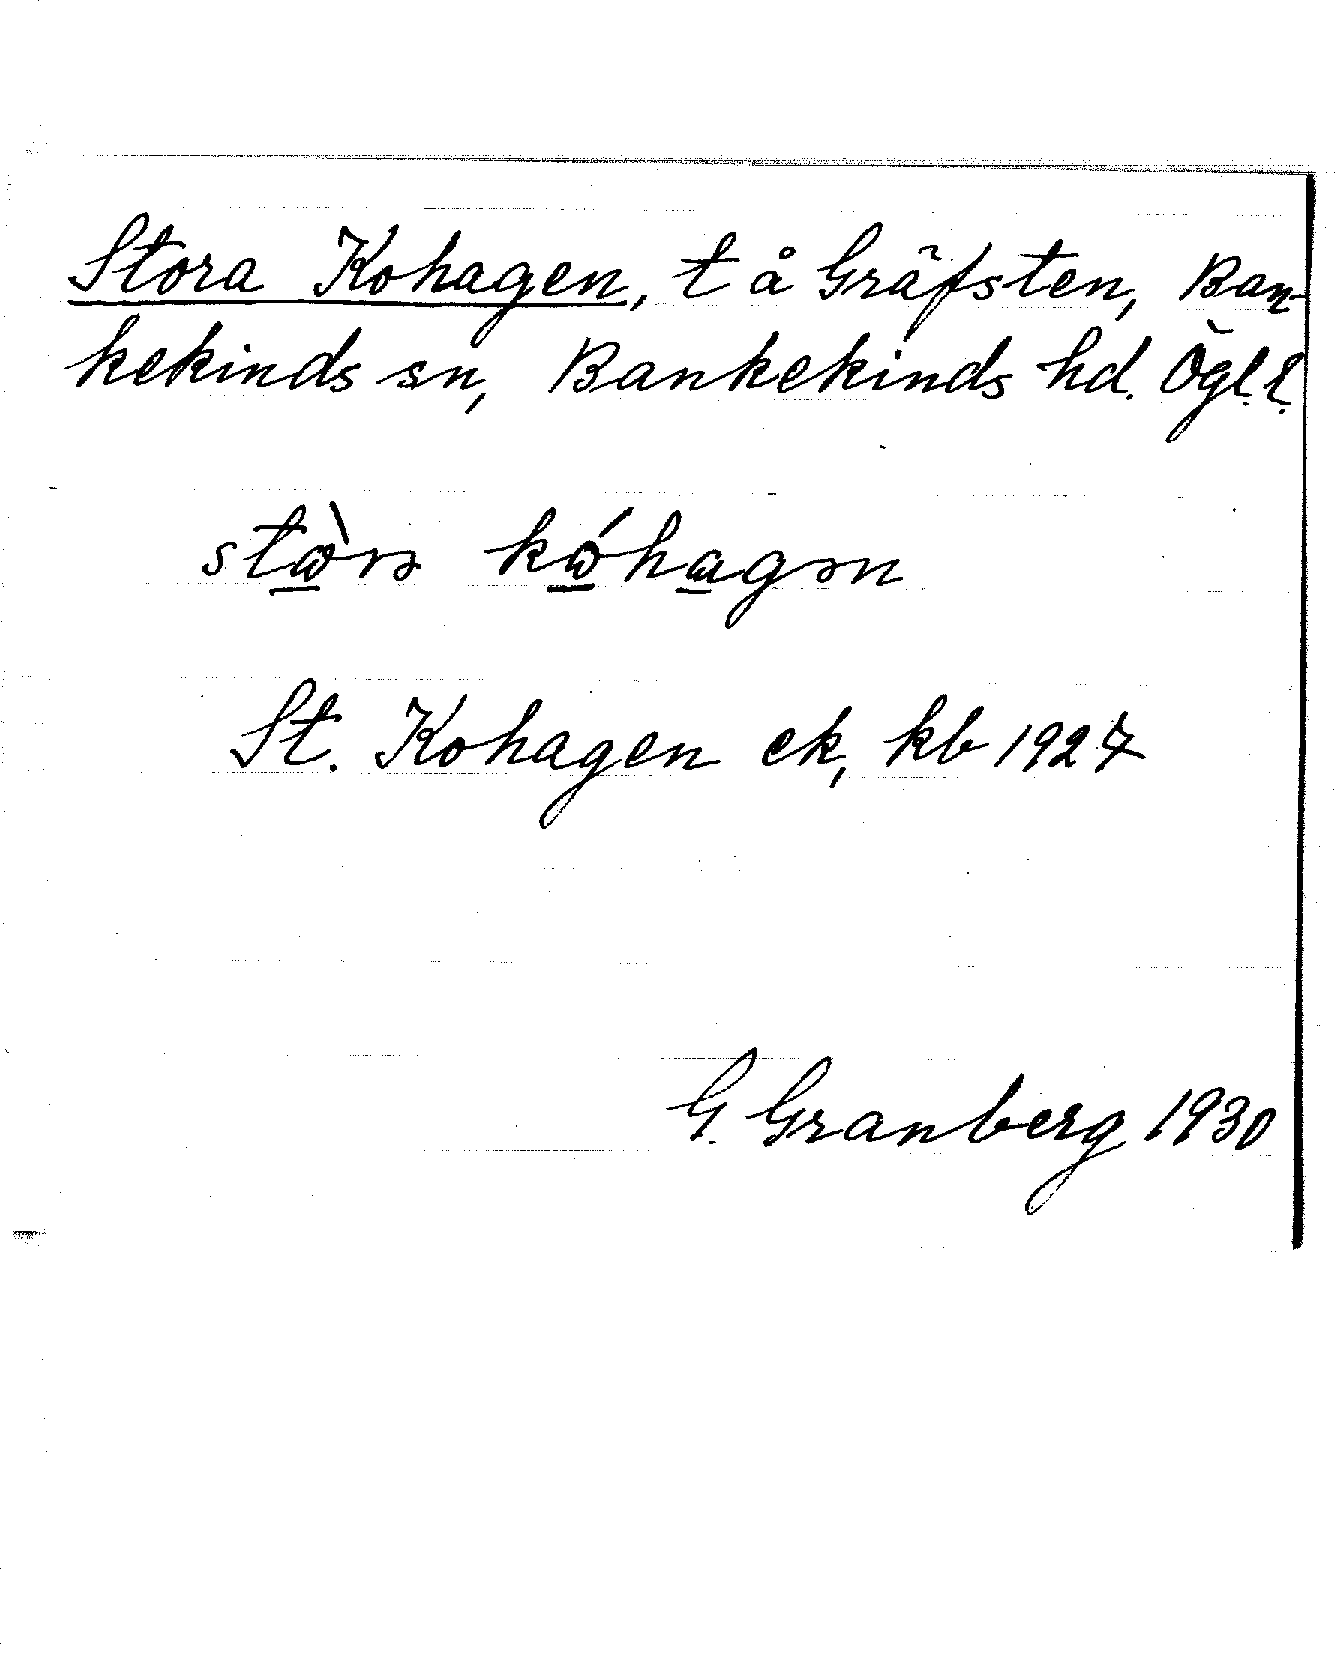 Stora Kohagen, t å Gräfsten, Ban-
kekinds sn, Bankekinds hd. Ögl. l.
stὼ̲rə kώ̲ha̲gən
St. Kohagen ek, kb 1927
G. Granberg 1930